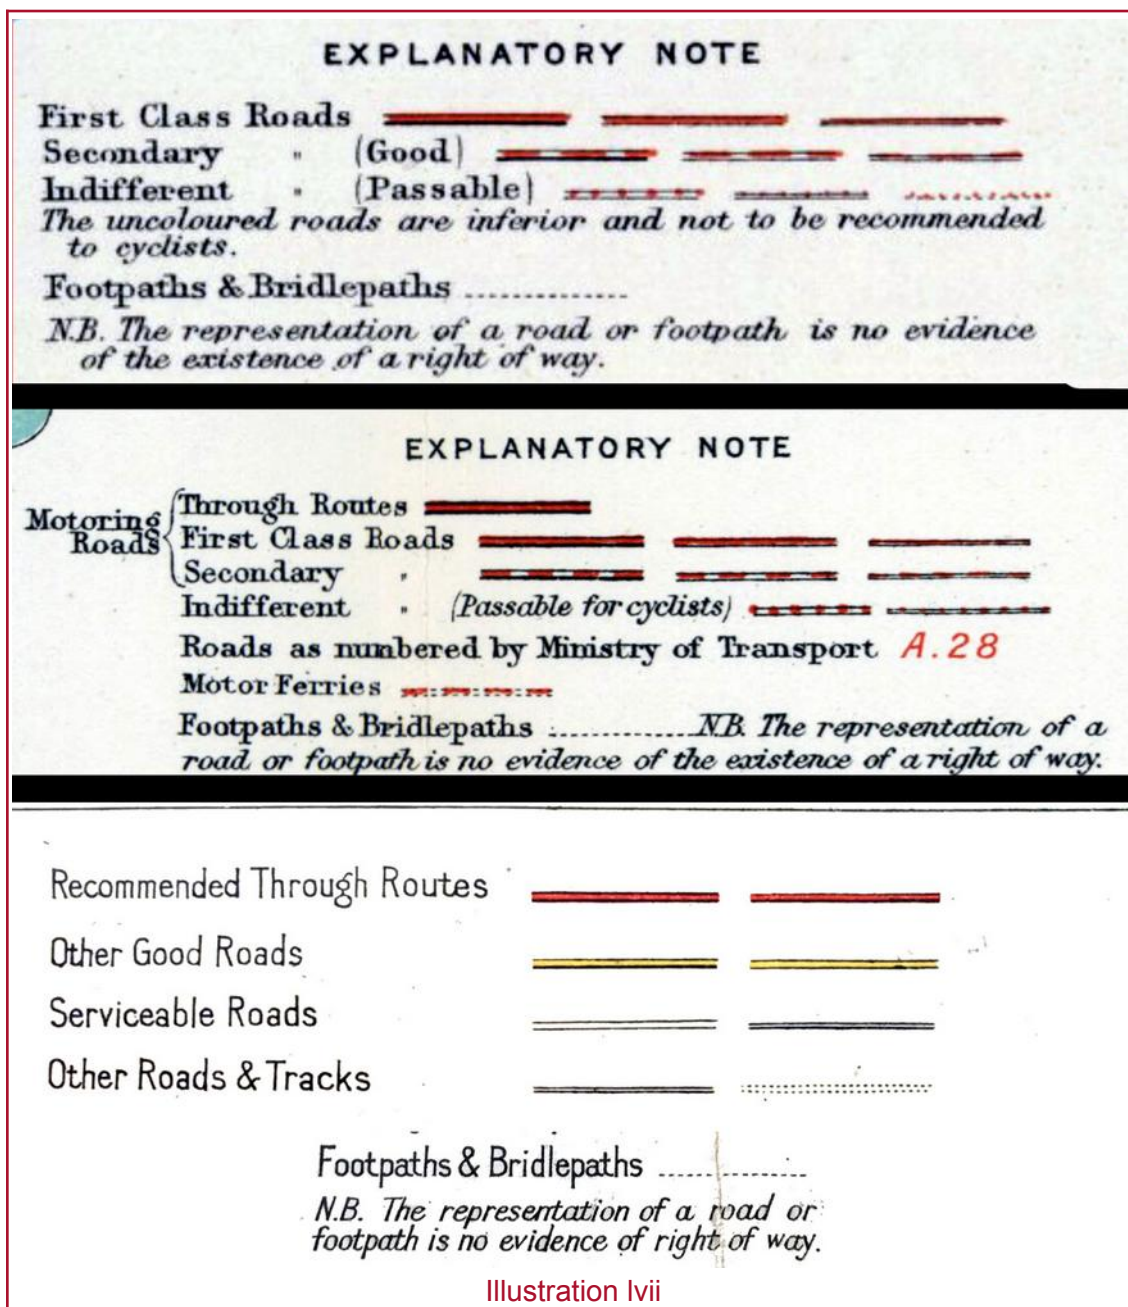 EXPLANATORY NOTE
First Class Roads
Secondary " (Good)
Indifferent " (Passable)
The uncoloured roads are inferior and not to be recommended
to cyclists.
Footpaths & Bridlepaths ..............
N.B. The representation of a road or footpath is no evidence
of the existence of a right of way.
EXPLANATORY NOTE
Motoring Roads
Through Routes
First Class Roads
Secondary "
Indifferent " (Passable for cyclists)
Roads as numbered by Ministry of Transport A.28
Motor Ferries
Footpaths & Bridlepaths .............. N.B. The representation of a
road or footpath is no evidence of the existence of a right of way.
Recommended Through Routes
Other Good Roads
Serviceable Roads
Other Roads & Tracks
Footpaths & Bridlepaths ..............
N.B. The representation of a road or
footpath is no evidence of right of way.
Illustration lvii